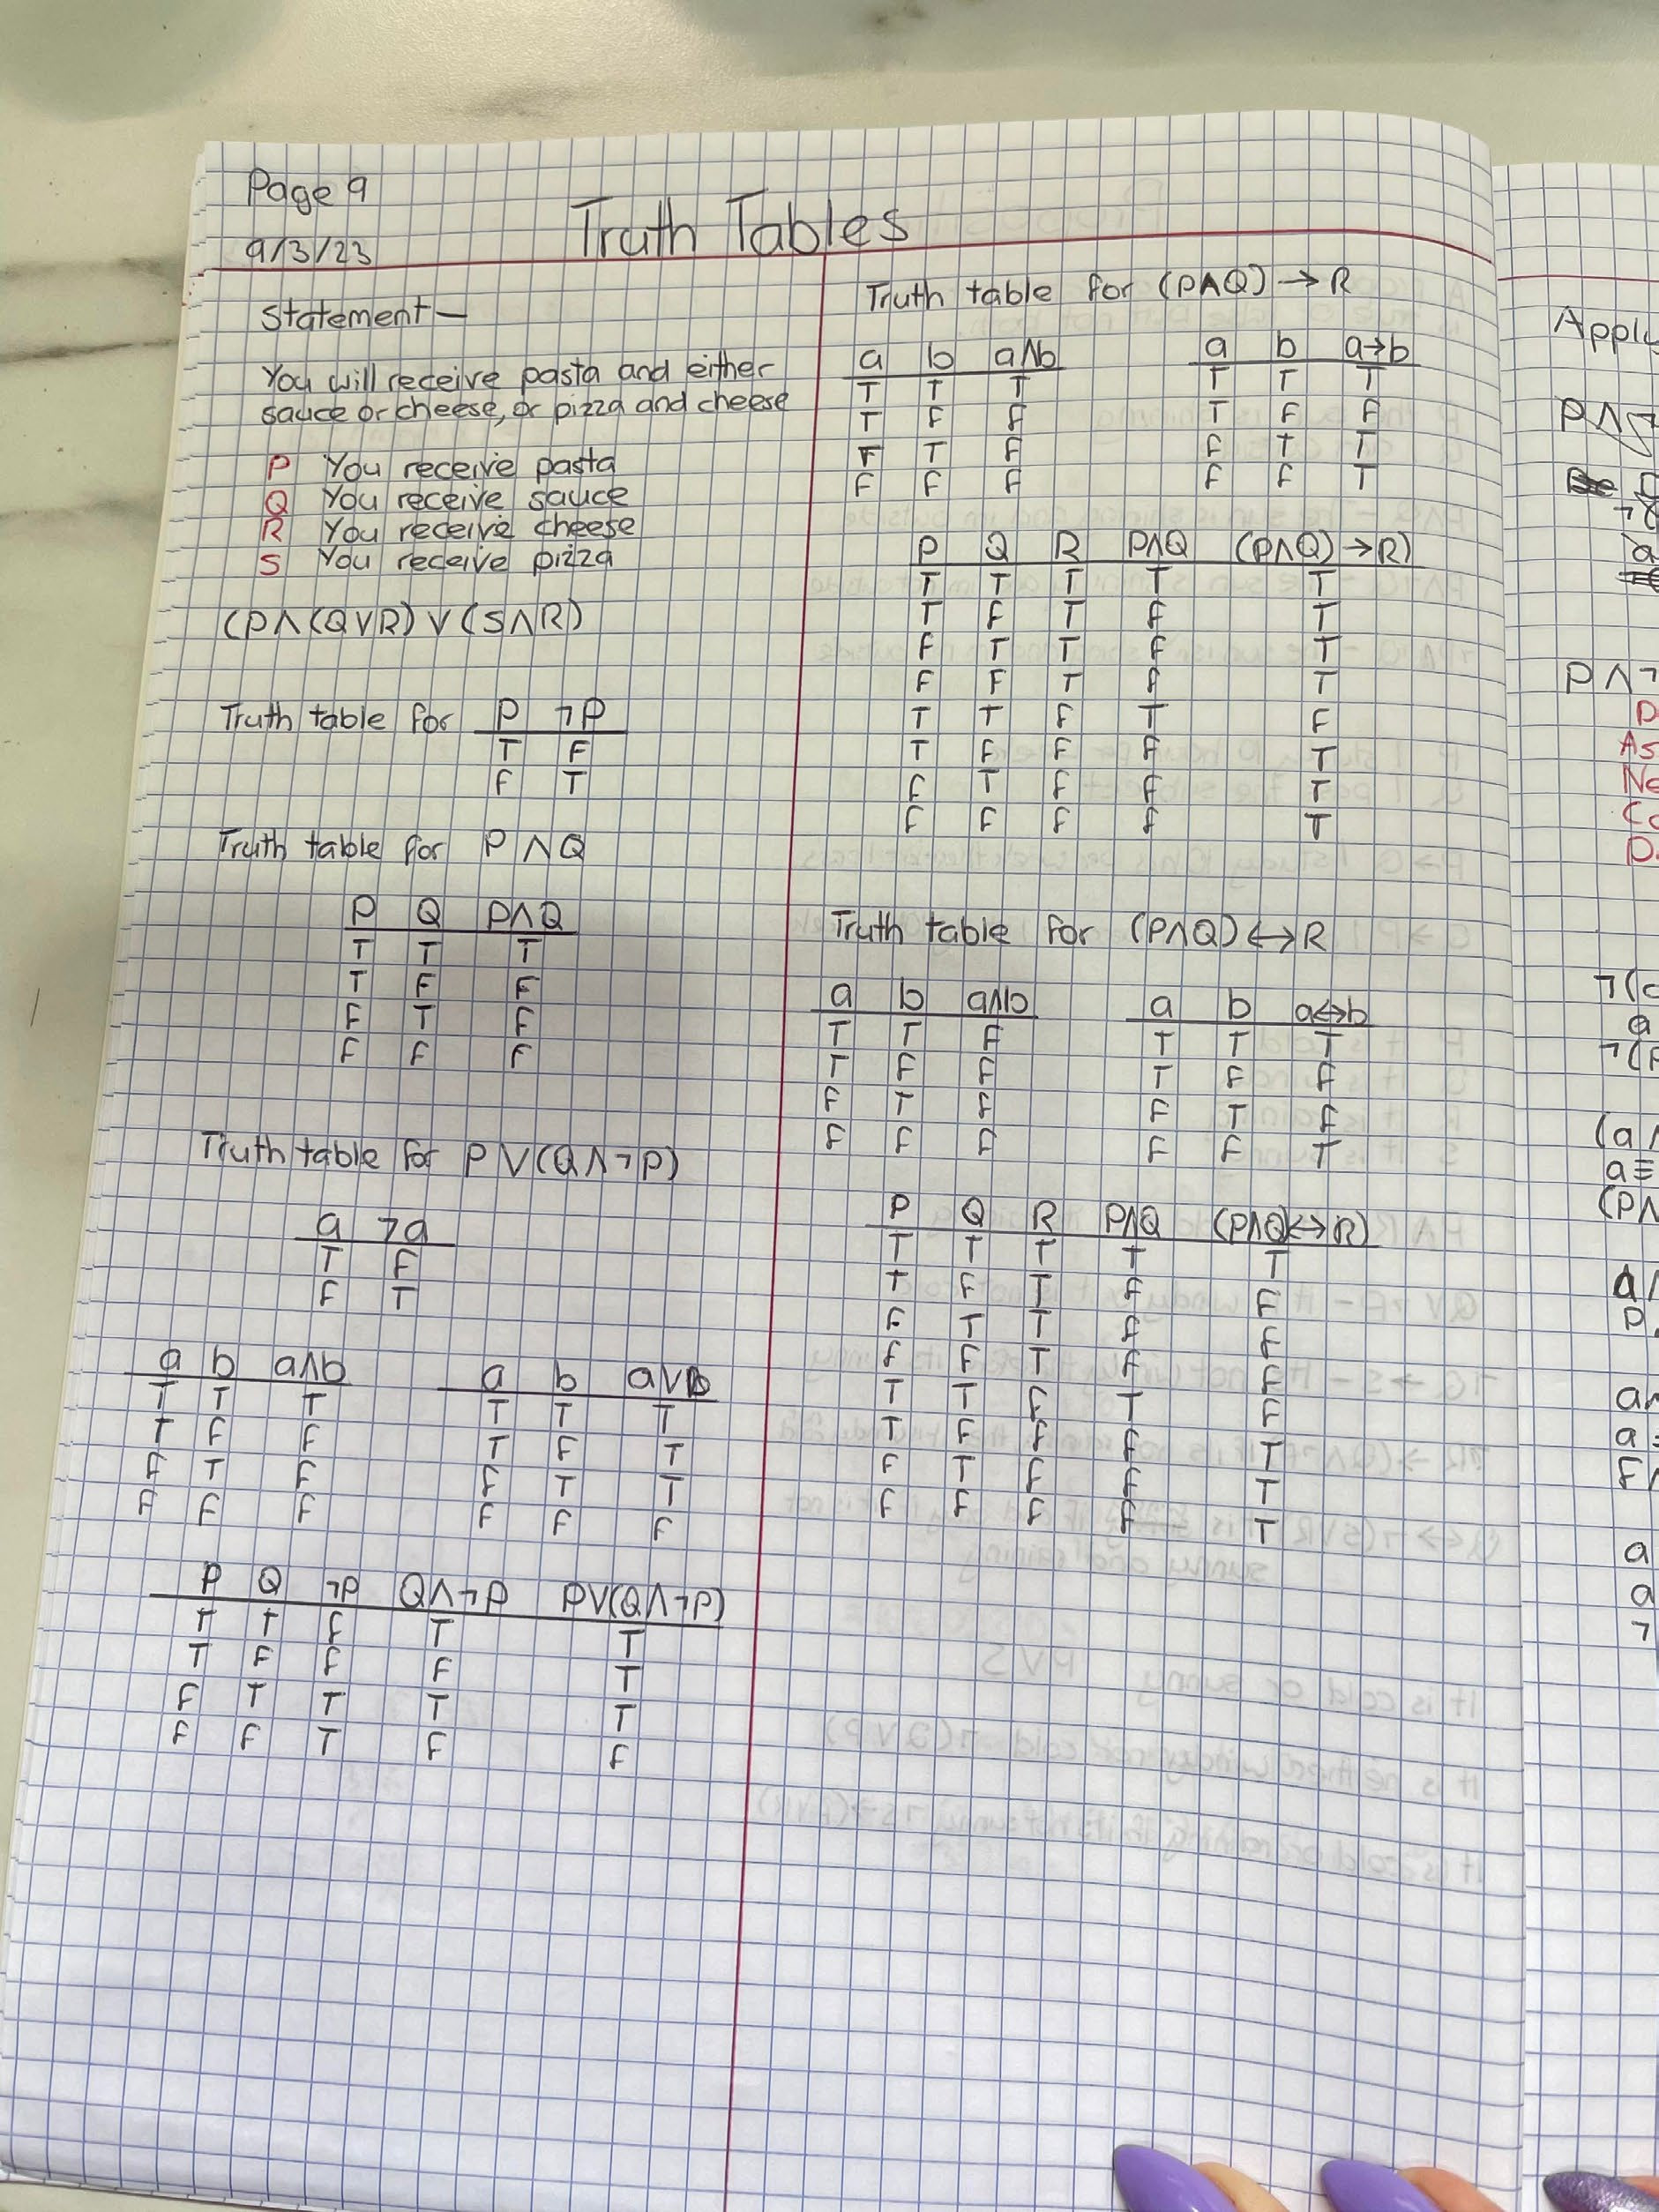 Page 9
9/3/23
Truth Tables
Statement —
You will receive pasta and either
sauce or cheese, or pizza and cheese
P You receive pasta
Q You receive sauce
R You receive cheese
S You receive pizza
(P∧(Q∨R)∨(S∧R)
Truth table for P ¬P
T F
F T
Truth table for P∧Q
P Q P∧Q
T T T
T F F
F T F
F F F
Truth table for P∨(Q∧¬P)
a ¬a
T F
F T
a b a∧b
T T T
T F F
F T F
F F F
a b a∨b
T T T
T F T
F T T
F F F
P Q ¬P Q∧¬P P∨(Q∧¬P)
T T F T T
T F F F T
F T T T T
F F T F F
Truth table for (P∧Q)→R
a b a∧b
T T T
T F F
F T F
F F F
a b a→b
T T T
T F F
F T T
F F T
P Q R P∧Q (P∧Q)→R)
T T T T T
T F T F T
F T T F T
F F T F T
T T F T F
T F F F T
F T F F T
F F F F T
Truth table for (P∧Q)↔R
a b a∧b
T T F
T F F
F T F
F F F
a b a↔b
T T T
T F F
F T F
F F T
P Q R P∧Q (P∧Q↔R)
T T T T T
T F T F F
F T T F F
F F T F F
T T F T F
T F F F T
F T F F T
F F F F T
Apply
P∧¬
P∧¬
As
Ne
¬(
a
¬(P
(a∧
a≡
(P∧
a∧
P
a∧
a
F∧
a
a
¬